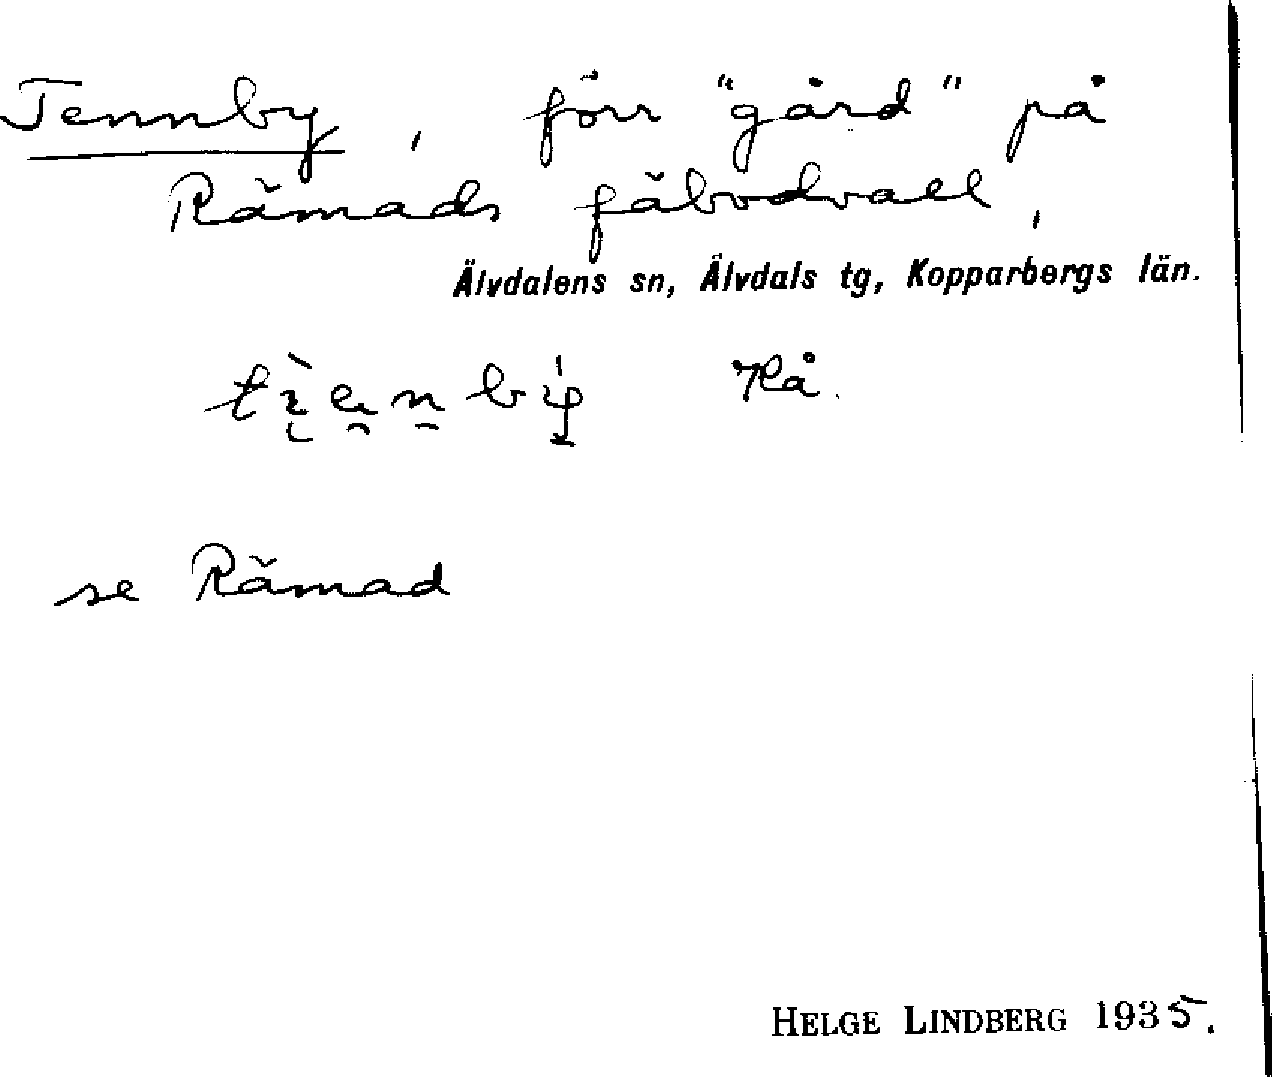 Tennby, förr "gård" på
Rämads fäbodvall,
Älvdalens sn, Älvdals tg, Kopparbergs län.
se Rämad
HELGE LINDBERG 1935.